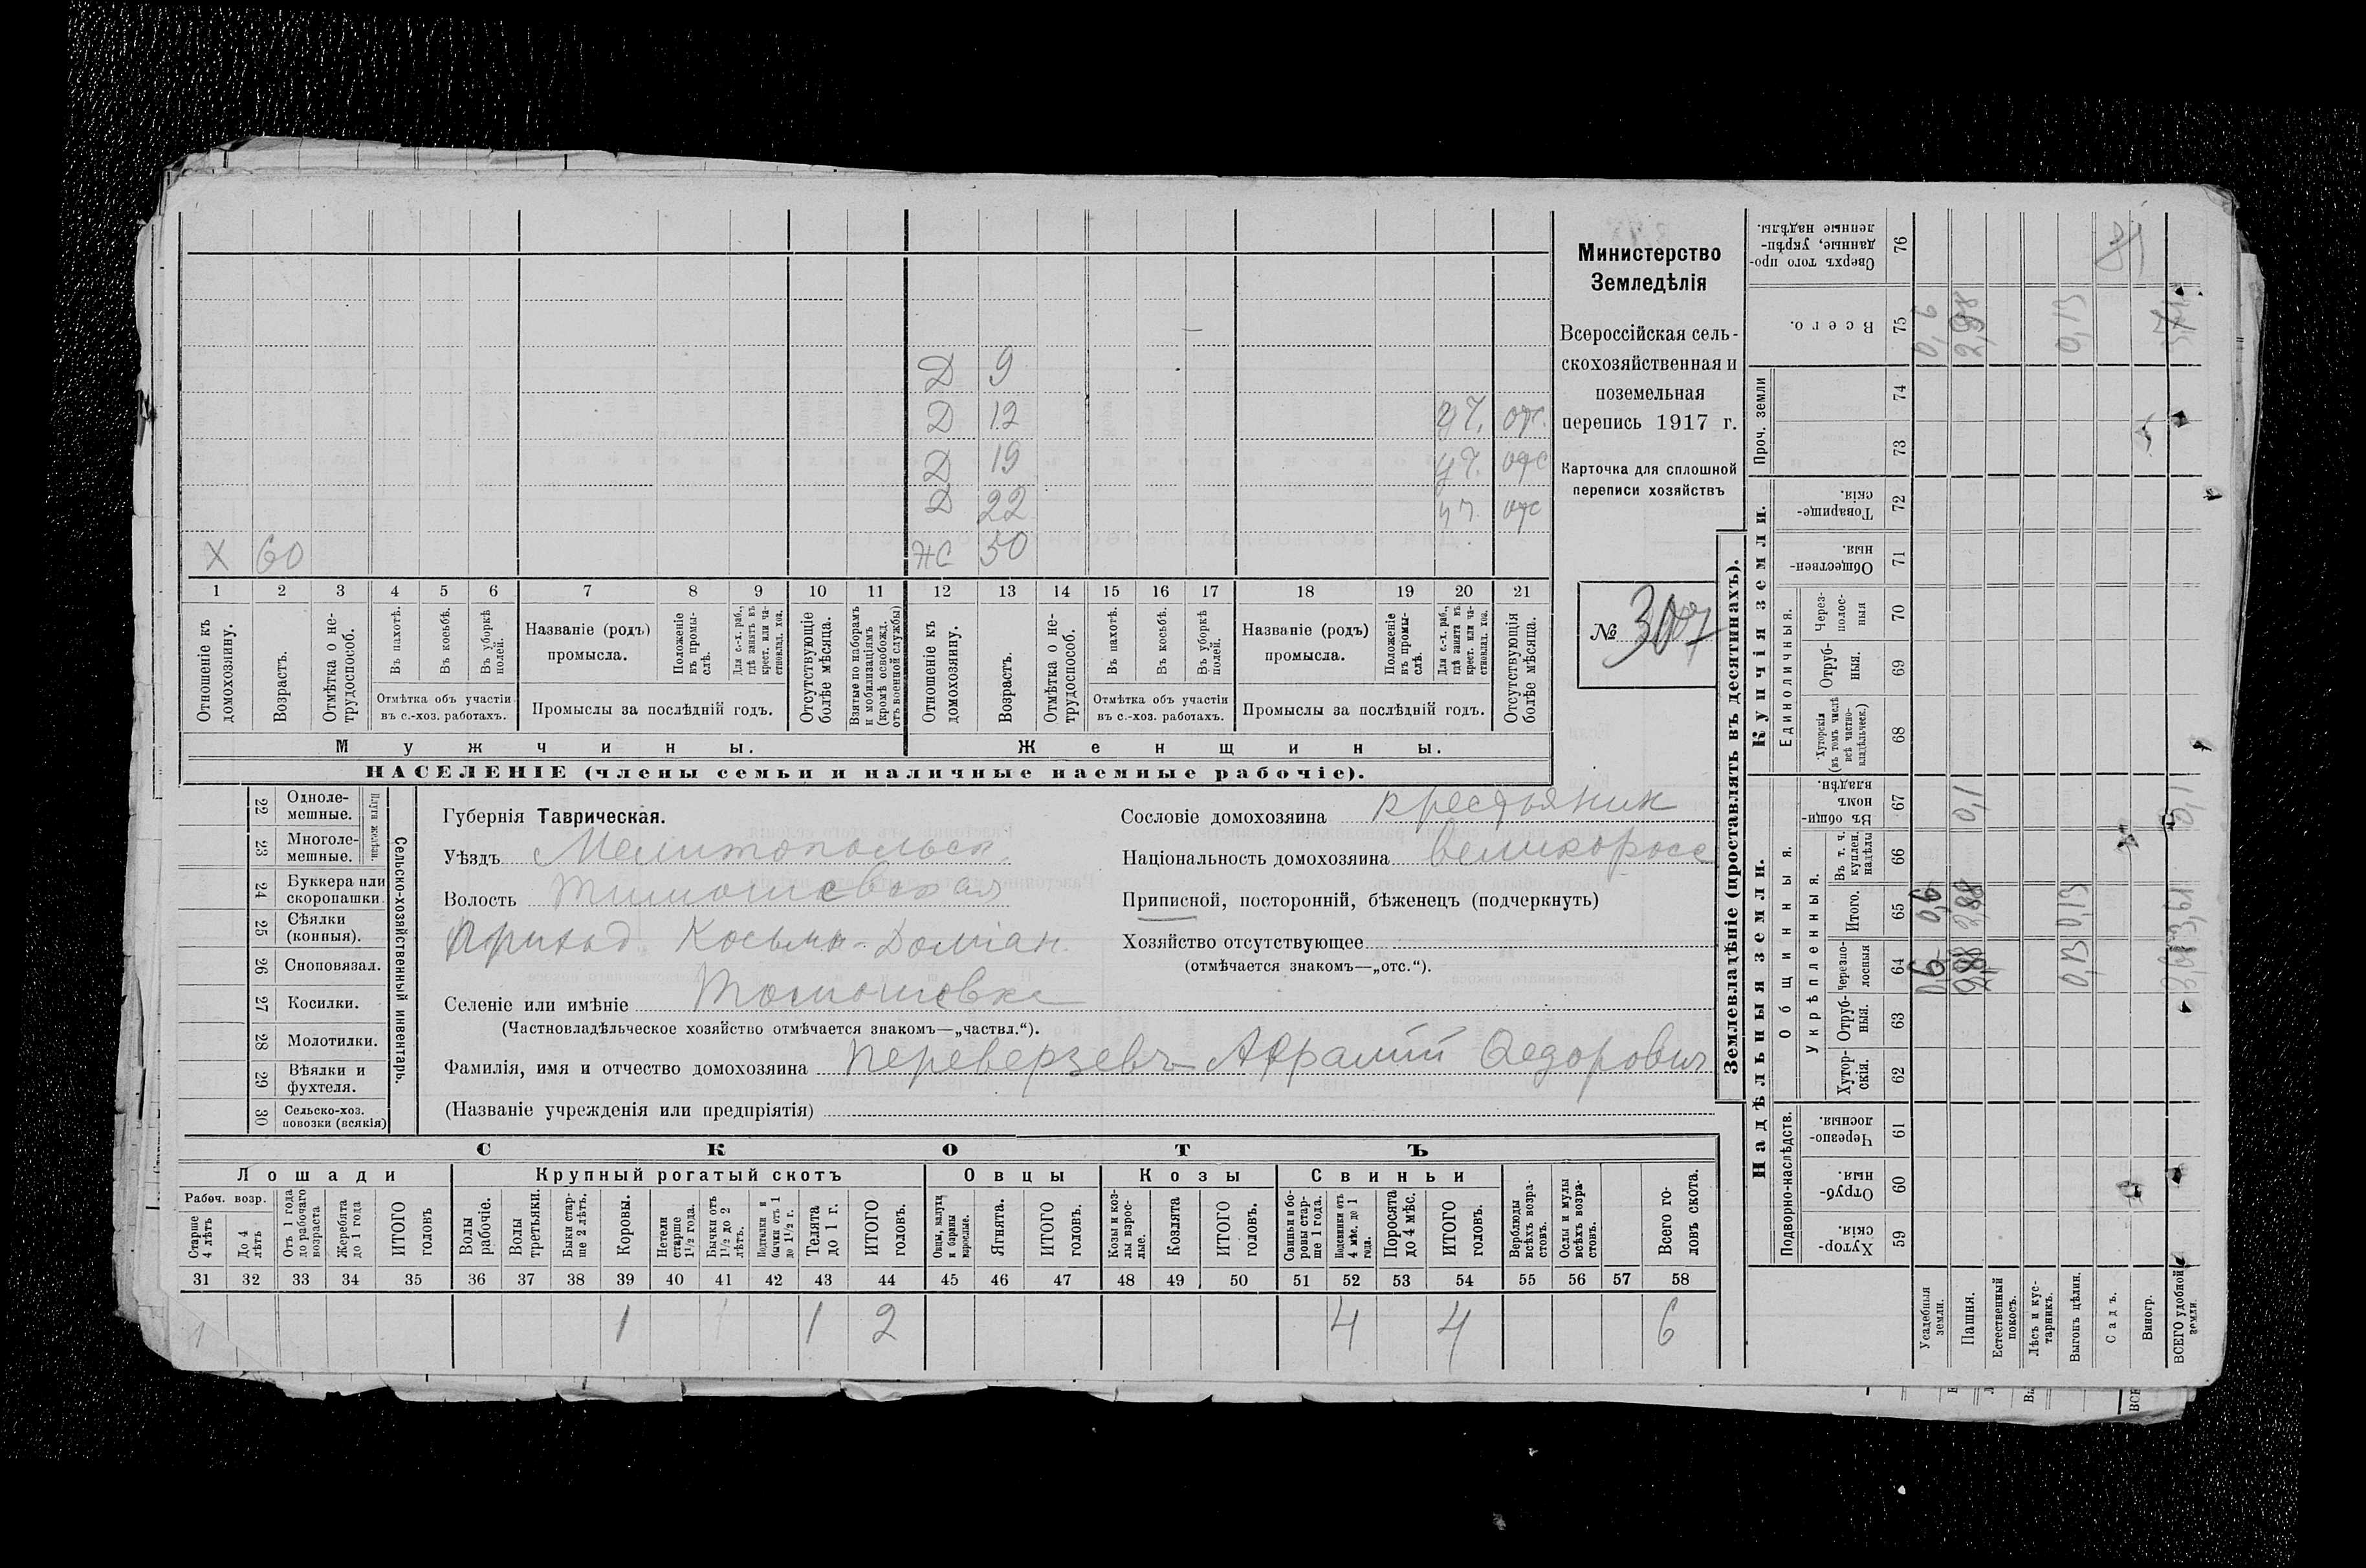 Д 9
Д 12 уч. отс.
Д 19 уч. отс
Д 22 уч. отс
Х 60 Ж 50
1 2 3 4 5 6 7 8 9 10 11 12 13 14 15 16 17 18 19 20 21
Отношеніе къ домохозяину.
Возрастъ.
Отмѣтка о нетрудоспособ.
Въ пахотѣ.
Въ косьбѣ.
Въ уборкѣ полей.
Отмѣтка объ участіи въ с.-хоз. работахъ.
Названіе (родъ) промысла.
Положеніе въ промыслѣ.
Для с.-х. раб., гдѣ занятъ въ крест. или частновлад. хоз.
Промыслы за послѣдній годъ.
Отсутствующіе болѣе мѣсяца.
Взятые по наборамъ и мобилизаціямъ (кромѣ освобожд. отъ военной службы)
Отношеніе къ домохозяину.
Возрастъ.
Отмѣтка о нетрудоспособ.
Въ пахотѣ.
Въ косьбѣ.
Въ уборкѣ полей.
Отмѣтка объ участіи въ с.-хоз. работахъ.
Названіе (родъ) промысла.
Положеніе въ промыслѣ.
Для с.-х. раб., гдѣ занята въ крест. или частновлад. хоз.
Промыслы за послѣдній годъ.
Отсутствующія болѣе мѣсяца.
Мужчины. Женщины.
НАСЕЛЕНІЕ (члены семьи и наличные наемные рабочіе).
Министерство
Земледѣлія
Всероссійская сель-
скохозяйственная и
поземельная
перепись 1917 г.
Карточка для сплошной
переписи хозяйствъ
№ 307
22 Одноле-
мешные.
23 Многоле-
мешные.
Плуги желѣзн.
24 Буккера или
скоропашки
25 Сѣялки
(конныя).
26 Сноповязал.
27 Косилки.
28 Молотилки.
29 Вѣялки и
фухтеля.
30 Сельско-хоз.
повозки (всякія)
Сельско-хозяйственный инвентарь.
Губернія Таврическая.
Уѣздъ Мелитопольск
Волость Тимошевская
Приходъ Косьмо-Доміан
Селеніе или имѣніе Тимошовка
(Частновладѣльческое хозяйство отмѣчается знакомъ—„частвл.“).
Фамилія, имя и отчество домохозяина Переверзевъ Авраамій Федорович
(Названіе учрежденія или предпріятія)
Сословіе домохозяина крестьянин
Національность домохозяина великоросс
Приписной, посторонній, бѣженецъ (подчеркнуть)
Хозяйство отсутствующее
(отмѣчается знакомъ—„отс.“).
СКОТЪ
Лошади Крупный рогатый скотъ Овцы Козы Свиньи
Рабоч. возр.
Старше 4 лѣтъ
До 4 лѣтъ
Отъ 1 года до рабочаго возраста
Жеребята до 1 года
ИТОГО головъ
Волы рабочіе.
Волы третьяки.
Быки старше 2 лѣтъ.
Коровы.
Нетели старше 1 1/2 года.
Бычки отъ 1 1/2 до 2 лѣтъ.
Подтелки и бычки отъ 1 до 1 1/2 г.
Телята до 1 г.
ИТОГО головъ.
Овцы, валухи и бараны взрослые.
Ягнята.
ИТОГО головъ.
Козы и козлы взрослые.
Козлята
ИТОГО головъ.
Свиньи и боровы старше 1 года.
Подсвинки отъ 4 мѣс. до 1 года.
Поросята до 4 мѣс.
ИТОГО головъ.
Верблюды всѣхъ возрастовъ.
Ослы и мулы всѣхъ возрастовъ.
Всего головъ скота.
31 32 33 34 35 36 37 38 39 40 41 42 43 44 45 46 47 48 49 50 51 52 53 54 55 56 57 58
1 1 1 2 4 4 6
Землевладѣніе (проставлять въ десятинахъ).
Купчія земли.
Надѣльныя земли.
Сверхъ того проданные, укрѣпленные надѣлы. 76
Всего. 75
Проч. земли 74 73
Товарищескія. 72
Общественныя. 71
Единоличныя.
Черезполосныя 70
Отрубныя. 69
Хуторскія (въ томъ числѣ всѣ частновладѣльческ.) 68
Общинныя.
Въ общинномъ владѣн. 67
Укрѣпленныя.
Въ т. ч. куплен. надѣлы 66
Итого. 65
Черезполосныя 64
Отрубныя. 63
Хуторскія. 62
Подворно-наслѣдств.
Черезполосныя. 61
Отрубныя. 60
Хуторскія. 59
Усадебныя земли. 0,6 0,6
Пашня. 2,88 2,88 0,1 2,98
Естественный покосъ.
Лѣсъ и кустарникъ.
Выгонъ цѣлин. 0,13 0,13 0,13
Садъ.
Виногр.
ВСЕГО удобной земли.